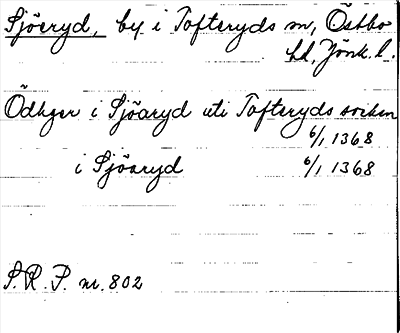 Sjöeryd, by i Tofteryds sn, Östbo
hd, Jönk. l.
Ödhger i Sjöaryd uti Tofteryds sokken
6/1 1368
i Sjöaryd 6/1 1368
S.R.P. nr. 802